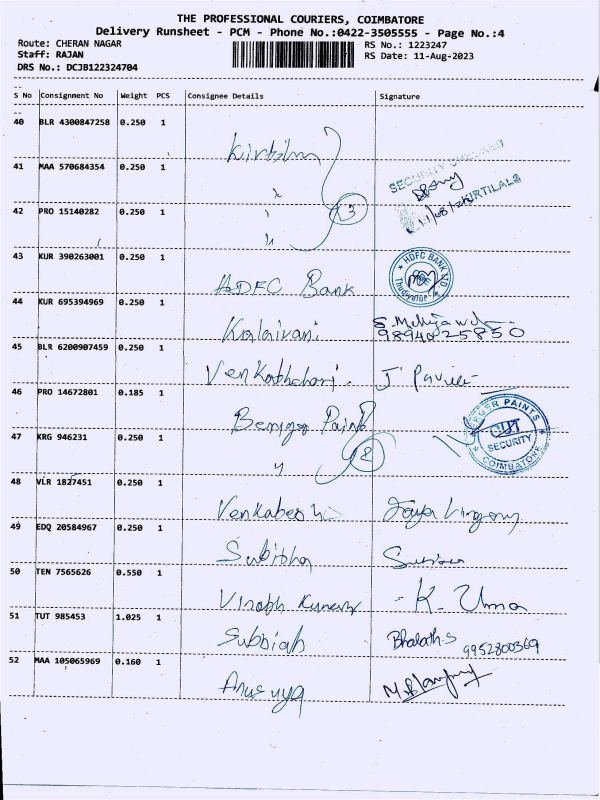 THE PROFESSIONAL COURIERS, COIMBATORE
Delivery Runsheet - PCM - Phone No.:0422-3505555 - Page No.:4
Route: CHERAN NAGAR RS No.: 1223247
Staff: RAJAN RS Date: 11-Aug-2023
DRS No.: DCJB122324704
S No Consignment No Weight PCS Consignee Details Signature
40 BLR 4300847258 0.250 1
41 MAA 570684354 0.250 1
SECURITY
11/08/2 KIRTILALS
42 PRO 15140282 0.250 1 3
43 KUR 390263001 0.250 1 HDFC Bank HDFC BANK LTD
44 KUR 695394969 0.250 1 Kalaivani 9894025850
45 BLR 6200907459 0.250 1 Venkatachari. J Pavi
46 PRO 14672801 0.185 1 Berger Paints BERGER PAINTS
SECURITY
COIMBATORE
47 KRG 946231 0.250 1 2
48 VLR 1827451 0.250 1 Venkatesh Jaya
49 EDQ 20584967 0.250 1
50 TEN 7565626 0.550 1 Kumar K. Uma
51 TUT 985453 1.025 1 Subbiah Bharath.S
9952800369
52 MAA 105065969 0.160 1 Anusuya